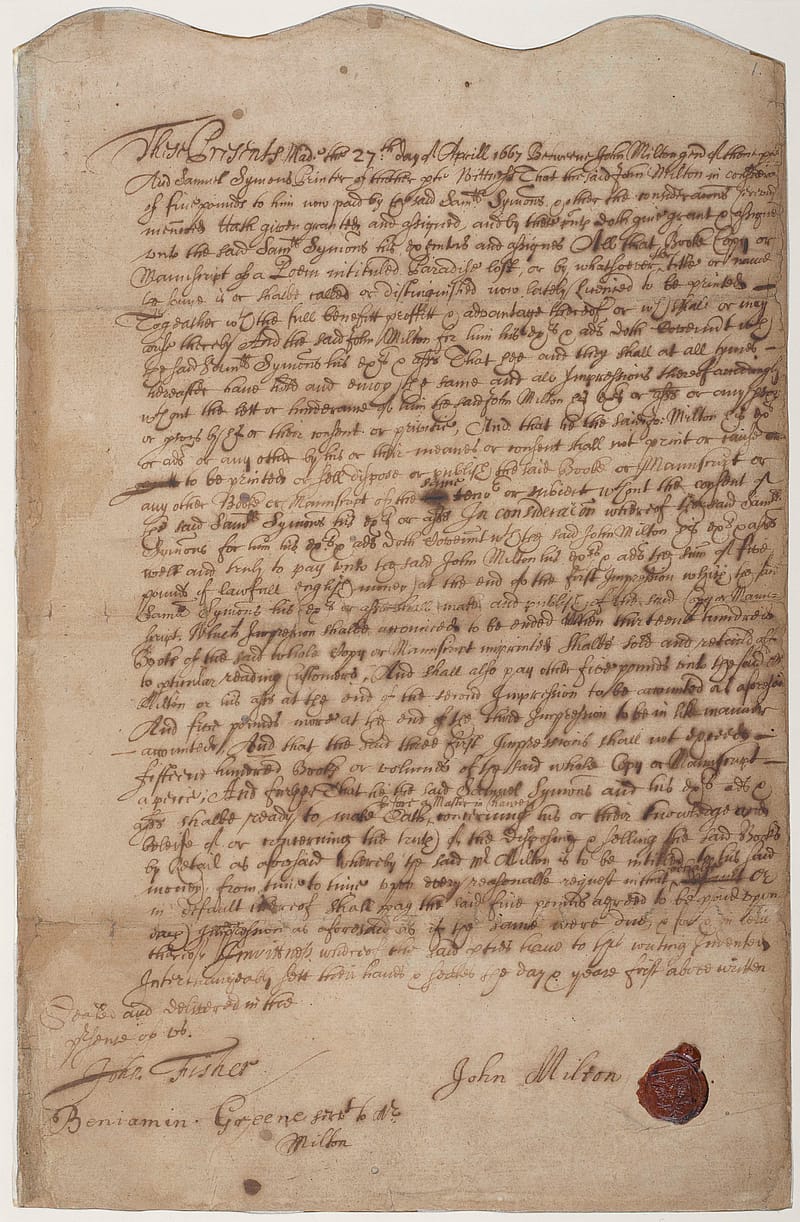 1.
These Presents Made the 27th day of Aprill 1667 Betweene John Milton gent of thone
And Samuel Symons Printer of thother pte Wittness That the said John Milton in
of five pounds to him now paid by the said Samll Symons & other the consideracons
Hath given granted and assigned, and by these doth give grant & assigne
unto the said Samll Symons his and assignes All that Booke Copy or
Manuscript of a Poem intituled Paradise lost, or by whatsoever other title or name
the same is or shalbe called or distinguished now lately Licensed to be printed
Togeather wth the full benefitt proffitt & advantage thereof or wch shall or may
arise thereby And the said John Milton for him his exrs & ads doth Covenant wth
the said Samll Symons his exrs & asss That hee and they shall at all tymes
hereafter have hold and enioy the same and all Impressions thereof accordingly
wthout the lett or hinderance of him the said John Milton his exrs or asss or any
or by his or their consent or privitie, And that he the said Jo: Milton his exrs
or ads or any other by his or their meanes or consent shall not print or cause
to be printed or sell dispose or publish the said Booke or Manuscript or
any other Booke or Manuscript of the same tenor or subiect wthout the consent of
the said Samll Symons his exrs or asss In consideracon whereof the said Samll
Symons for him his exrs & ads doth Covenant wth the said John Milton his exrs & asss
well and truly to pay unto the said John Milton his exrs & ads the sum of five
pounds of lawfull english money at the end of the first Impression which the said
Samll Symons his exrs or asss shall make and publish of the said Copy or Manu-
script, Which Impression shalbe accounted to be ended when thirteene hundred
Books of the said whole Copy or Manuscript imprinted shalbe sold and retaild off
to pticular reading Customers, And shall also pay other five pounds unto the said
Milton or his asss at the end of the second Impression to be accounted as aforesaid
And five pounds more at the end of the third Impression to be in like manner
accounted, And that the said three first Impressions shall not exceed
fifteene hundred Books or volumes of the said whole Copy or Manuscript
a peice, And further That he the said Samuel Symons and his exrs ads &
asss shalbe ready to make Oath before a Master in Chancery concerning his or their knowledge and
beleife of or concerning the truth of the disposing & selling the said Books
by Retail as aforesaid whereby the said Mr Milton is to be intitled to his said
money from time to time upon every reasonable request in that or
in default thereof shall pay the said five pounds agreed to be paid upon
each Impression as aforesaid as if the same were due, & for & in lieu
thereof In wittness whereof the said pties have to this writing Indented
Interchangeably sett their hands & seales the day & yeare first above written
Sealed and delivered in the
psence of us.
John Fisher
John Milton
Beniamin Greene servt to Mr
Milton